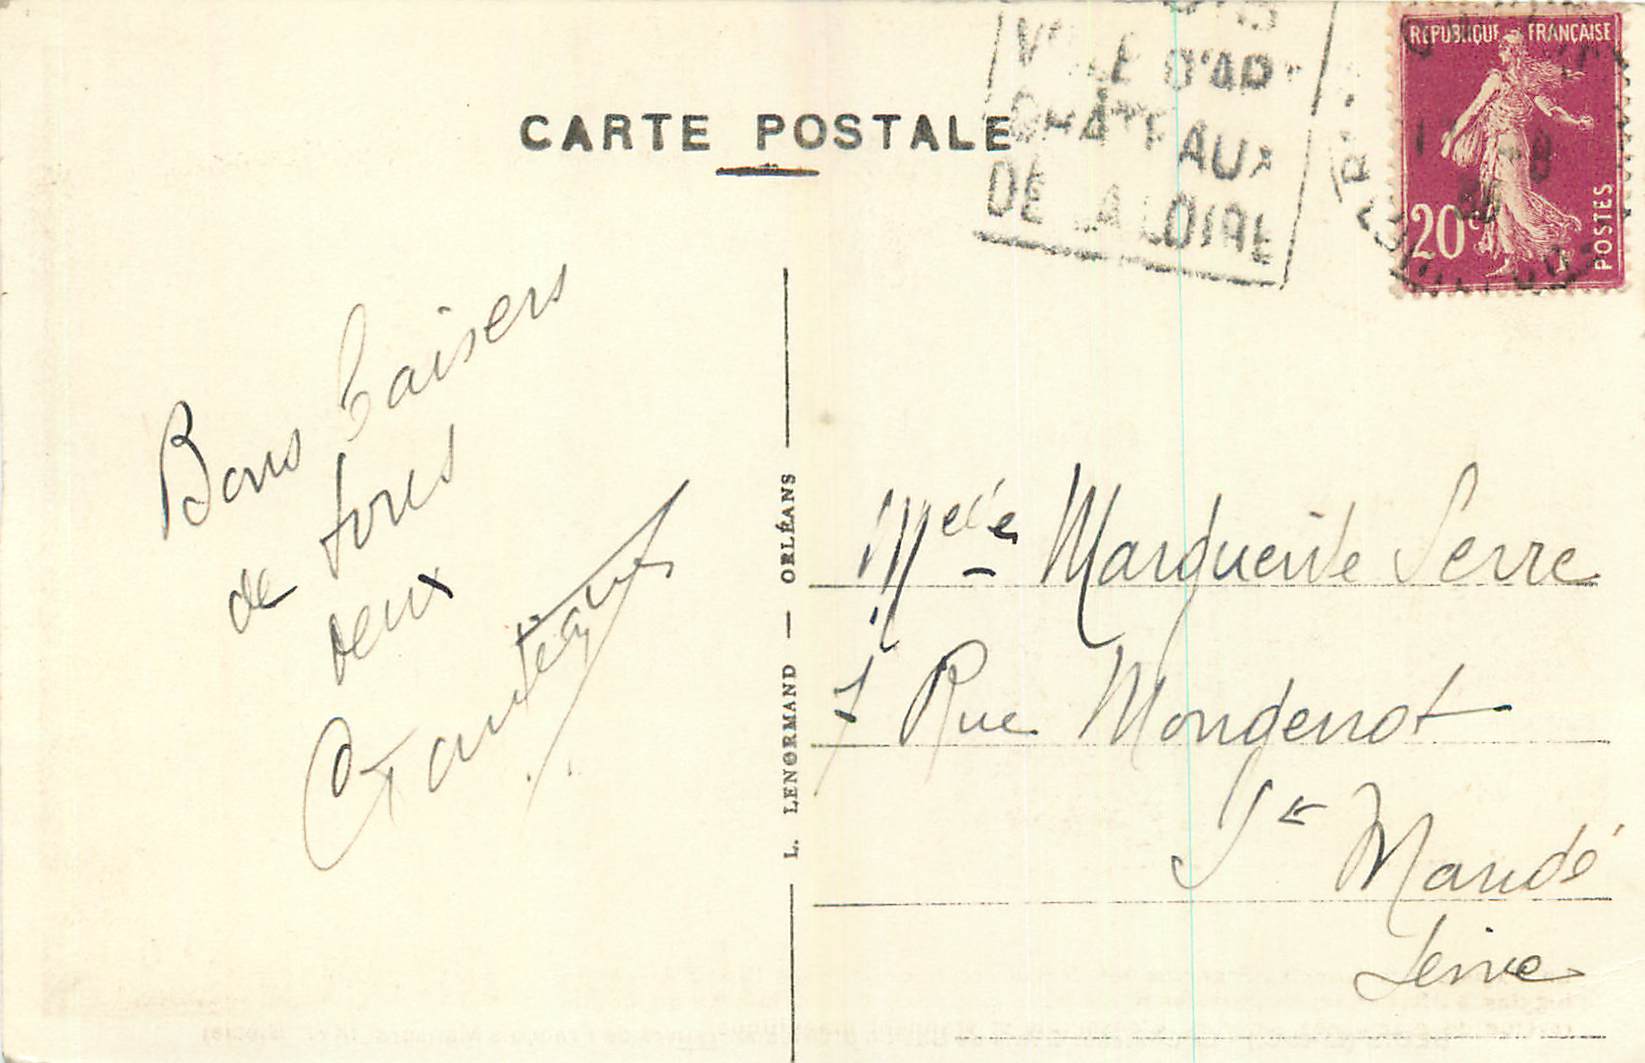 CARTE POSTALE
VILLE D'ART
CHATEAUX
DE LA LOIRE
REPUBLIQUE FRANÇAISE
20c
POSTES
Bons baisers
de tous
deux
L. LENORMAND — ORLÉANS
Melle Marguerite Serre
7 Rue Mongenot
St Mandé
Seine